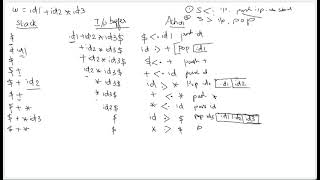 w = id1 + id2 * id3 ① S <· i/p. push i/p
② S > i/p. pop
Stack I/p buffer Action
$ id1 + id2 * id3 $ $ <· id1 push id
$ id1 + id2 * id3 $ id > + pop id1
$ + id2 * id3 $ $ <· + push +
$ + id2 * id3 $ + <· id push id
$ + id2 * id3 $ id > * pop id id1 id2
$ + * id3 $ + <· * push *
$ + * id3 $ * <· id push id
$ + * id3 $ id > $ pop id3 id1 id2 id3
$ + * $ * > $ P